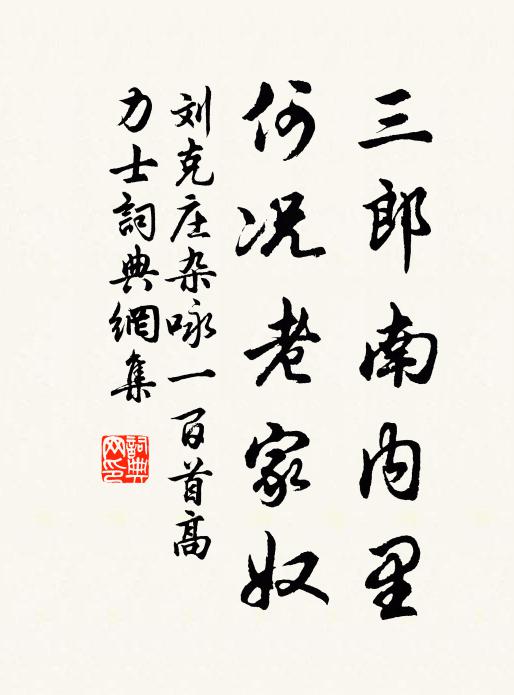 三郎南内里
何况老家奴
刘克庄杂咏一百首高
力士詞典網集
詞典
网印